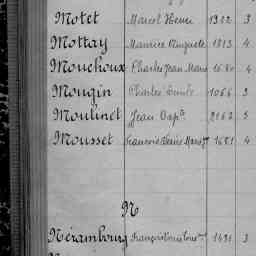 Motet Marcel Henri 1302 3
Mottay Maurice Auguste 1813 4
Mouchoux Charles Jean Marie 1680 4
Mougin Charles Emile 1066 3
Moulinet Jean Bapte 2162 5
Mousset François Denis 1681 4
N
Nérambourg François 1431 3